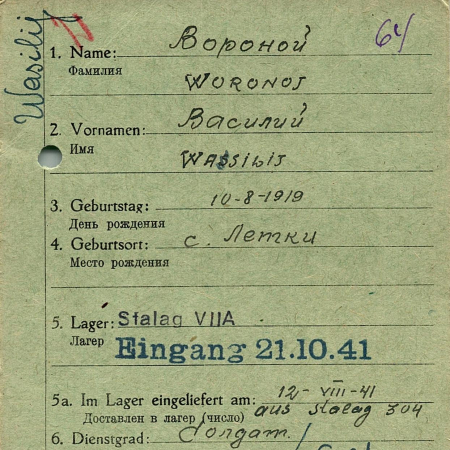 Wasilij
64
1. Name: Вороной
Фамилия
WORONOJ
2. Vornamen: Василий
Имя
WASSILIJ
3. Geburtstag: 10-8-1919
День рождения
4. Geburtsort: с. Летки
Место рождения
5. Lager: Stalag VIIA
Лагер Eingang 21.10.41
5a. Im Lager eingeliefert am: 12-VIII-41
Доставлен в лагер (число) aus Stalag 304
6. Dienstgrad: